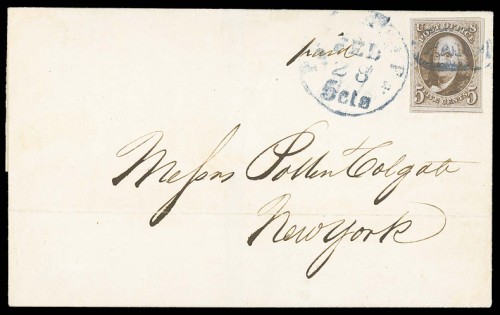 paid
FEB
28
5cts
U S
POST OFFICE
5 FIVE CENTS 5
Messrs Pollen Colgate
New York